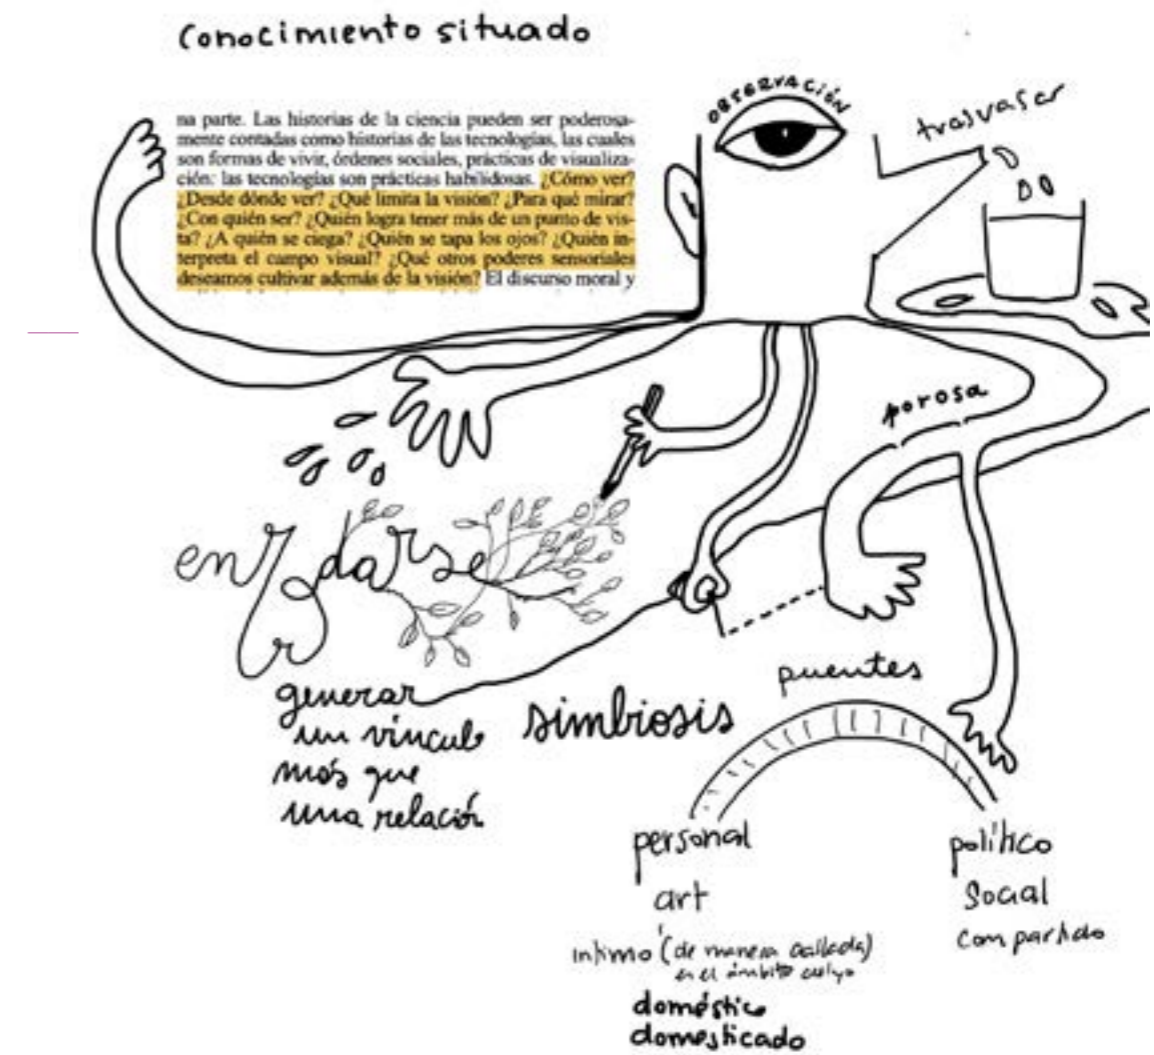 conocimiento situado
na parte. Las historias de la ciencia pueden ser poderosa-
mente contadas como historias de las tecnologías, las cuales
son formas de vivir, órdenes sociales, prácticas de visualiza-
ción: las tecnologías son prácticas habilidosas. ¿Cómo ver?
¿Desde dónde ver? ¿Qué limita la visión? ¿Para qué mirar?
¿Con quién ser? ¿Quién logra tener más de un punto de vis-
ta? ¿A quién se ciega? ¿Quién se tapa los ojos? ¿Quién in-
terpreta el campo visual? ¿Qué otros poderes sensoriales
deseamos cultivar además de la visión? El discurso moral y
OBSERVACIÓN
trasvasar
porosa
enredarse
generar
un vínculo
más que
una relación
simbiosis
puentes
personal
art
íntimo (de manera callada)
en el ámbito
doméstico
domesticado
político
social
compartido